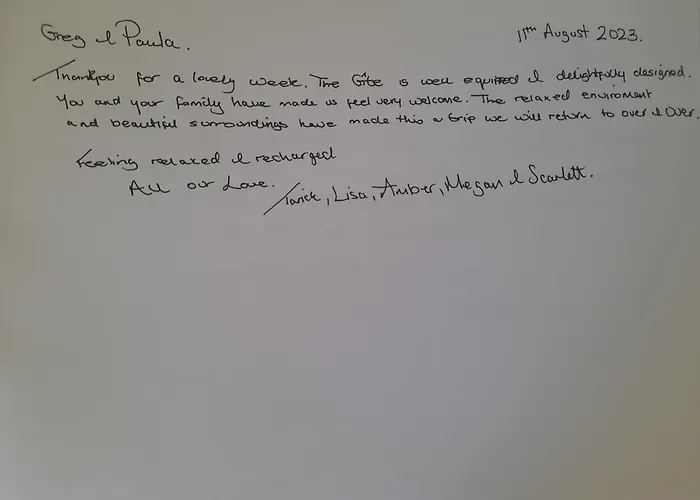 Greg & Paula.
11th August 2023.
Thankyou for a lovely week. The Gîte is well equipped & delightfully designed.
You and your family have made us feel very welcome. The relaxed enviroment
and beautiful surroundings have made this a trip we will return to over & over.
Feeling relaxed & recharged
All our Love.
Tarick, Lisa, Amber, Megan & Scarlett.